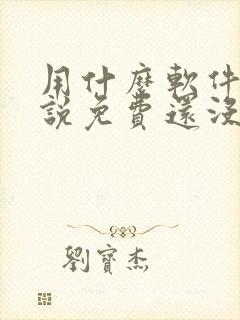 用什麼軟件
說免費還沒
劉寶杰